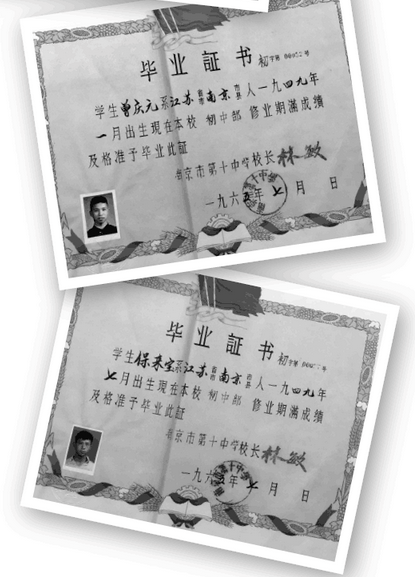 毕业証书
初字第
学生曾庆元系江苏省市南京市县人一九四九年
一月出生現在本校初中部修业期滿成績
及格准予毕业此証
南京市第十中学校长林敏
一九六五年七月 日
毕业証书
初字第
学生保来宝系江苏省市南京市县人一九四九年
七月出生現在本校初中部修业期滿成績
及格准予毕业此証
南京市第十中学校长林敏
一九六五年七月 日